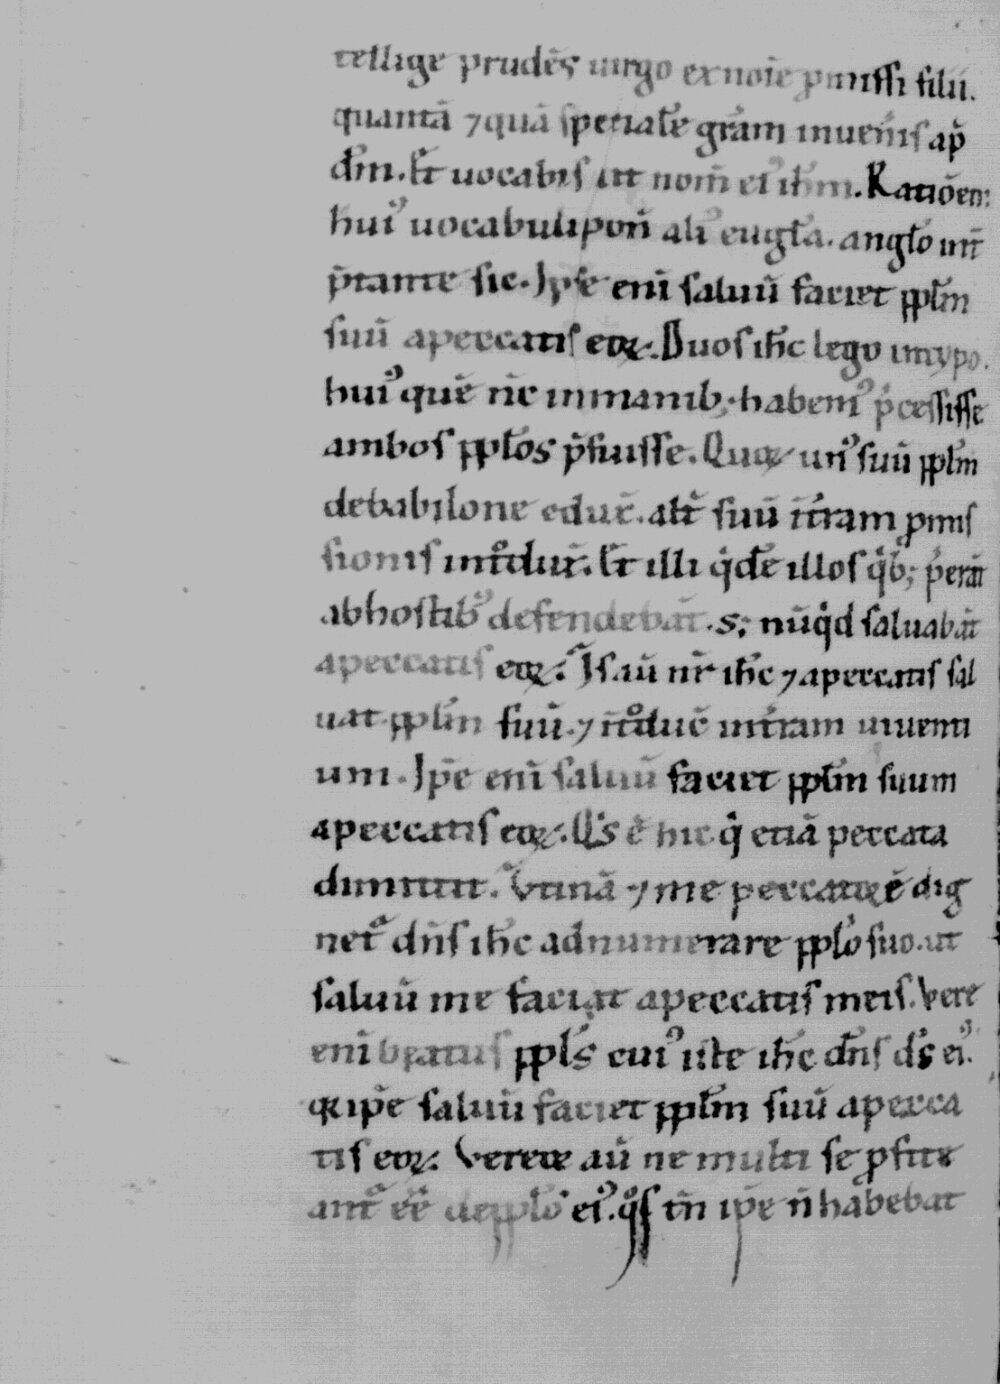 tellige prudẽs uirgo ex noĩe ꝓmissi filii.
quantã ⁊ quã speciałe grãm inuenis ap̃
dm̃. Et̃ uocabis in nom̃ ei᷒ ih̃m. Ratiõem:
hui᷒ uocabuli pon̄ ali᷒ eugła. angło int̃
p̃tante sic. Ipse enĩ saluũ faciet ppłm
suũ a peccatis eoꝝ. Duos ih̃c lego in typo.
hui᷒ quẽ ñc in manib; habem᷒ p̃cessisse
ambos ppłos p̃fuisse. Quoꝝ un᷒ suũ ppłm
de babilone eduẽ. alt̃ suũ ĩ t̃ram ꝓmis
sionis int̊duẽ. Et̃ illi q̇dẽ illos q̇b; p̃erãt
ab hostib᷒ defendebãt. s; nũq̇d saluabãt
a peccatis eoꝝ. Is aũ nr̃ ih̃c ⁊ a peccatis sal
uat ppłm suũ. ⁊ ĩt̊ducẽ in t̃ram uiuenti
um. Ip̃e enĩ saluũ faciet ppłm suum
a peccatis eoꝝ. Q̇s ẽ hic q̇ etiã peccata
dimittit. Vtinã ⁊ me peccatoꝝẽ dig
net᷑ dñs ih̃c adnumerare ppło suo. ut
saluũ me faciat a peccatis meis. Vere
enĩ beatus ppłs cui᷒ iste ih̃c dñs d̃s ei᷒.
qꝛ ip̃e saluũ faciet ppłm suũ a pecca
tis eoꝝ. Vereoꝛ aũ ne multi se ꝓfite
ant᷑ eẽ de ppło ei᷒. q̊s tñ ip̃e ñ habebat